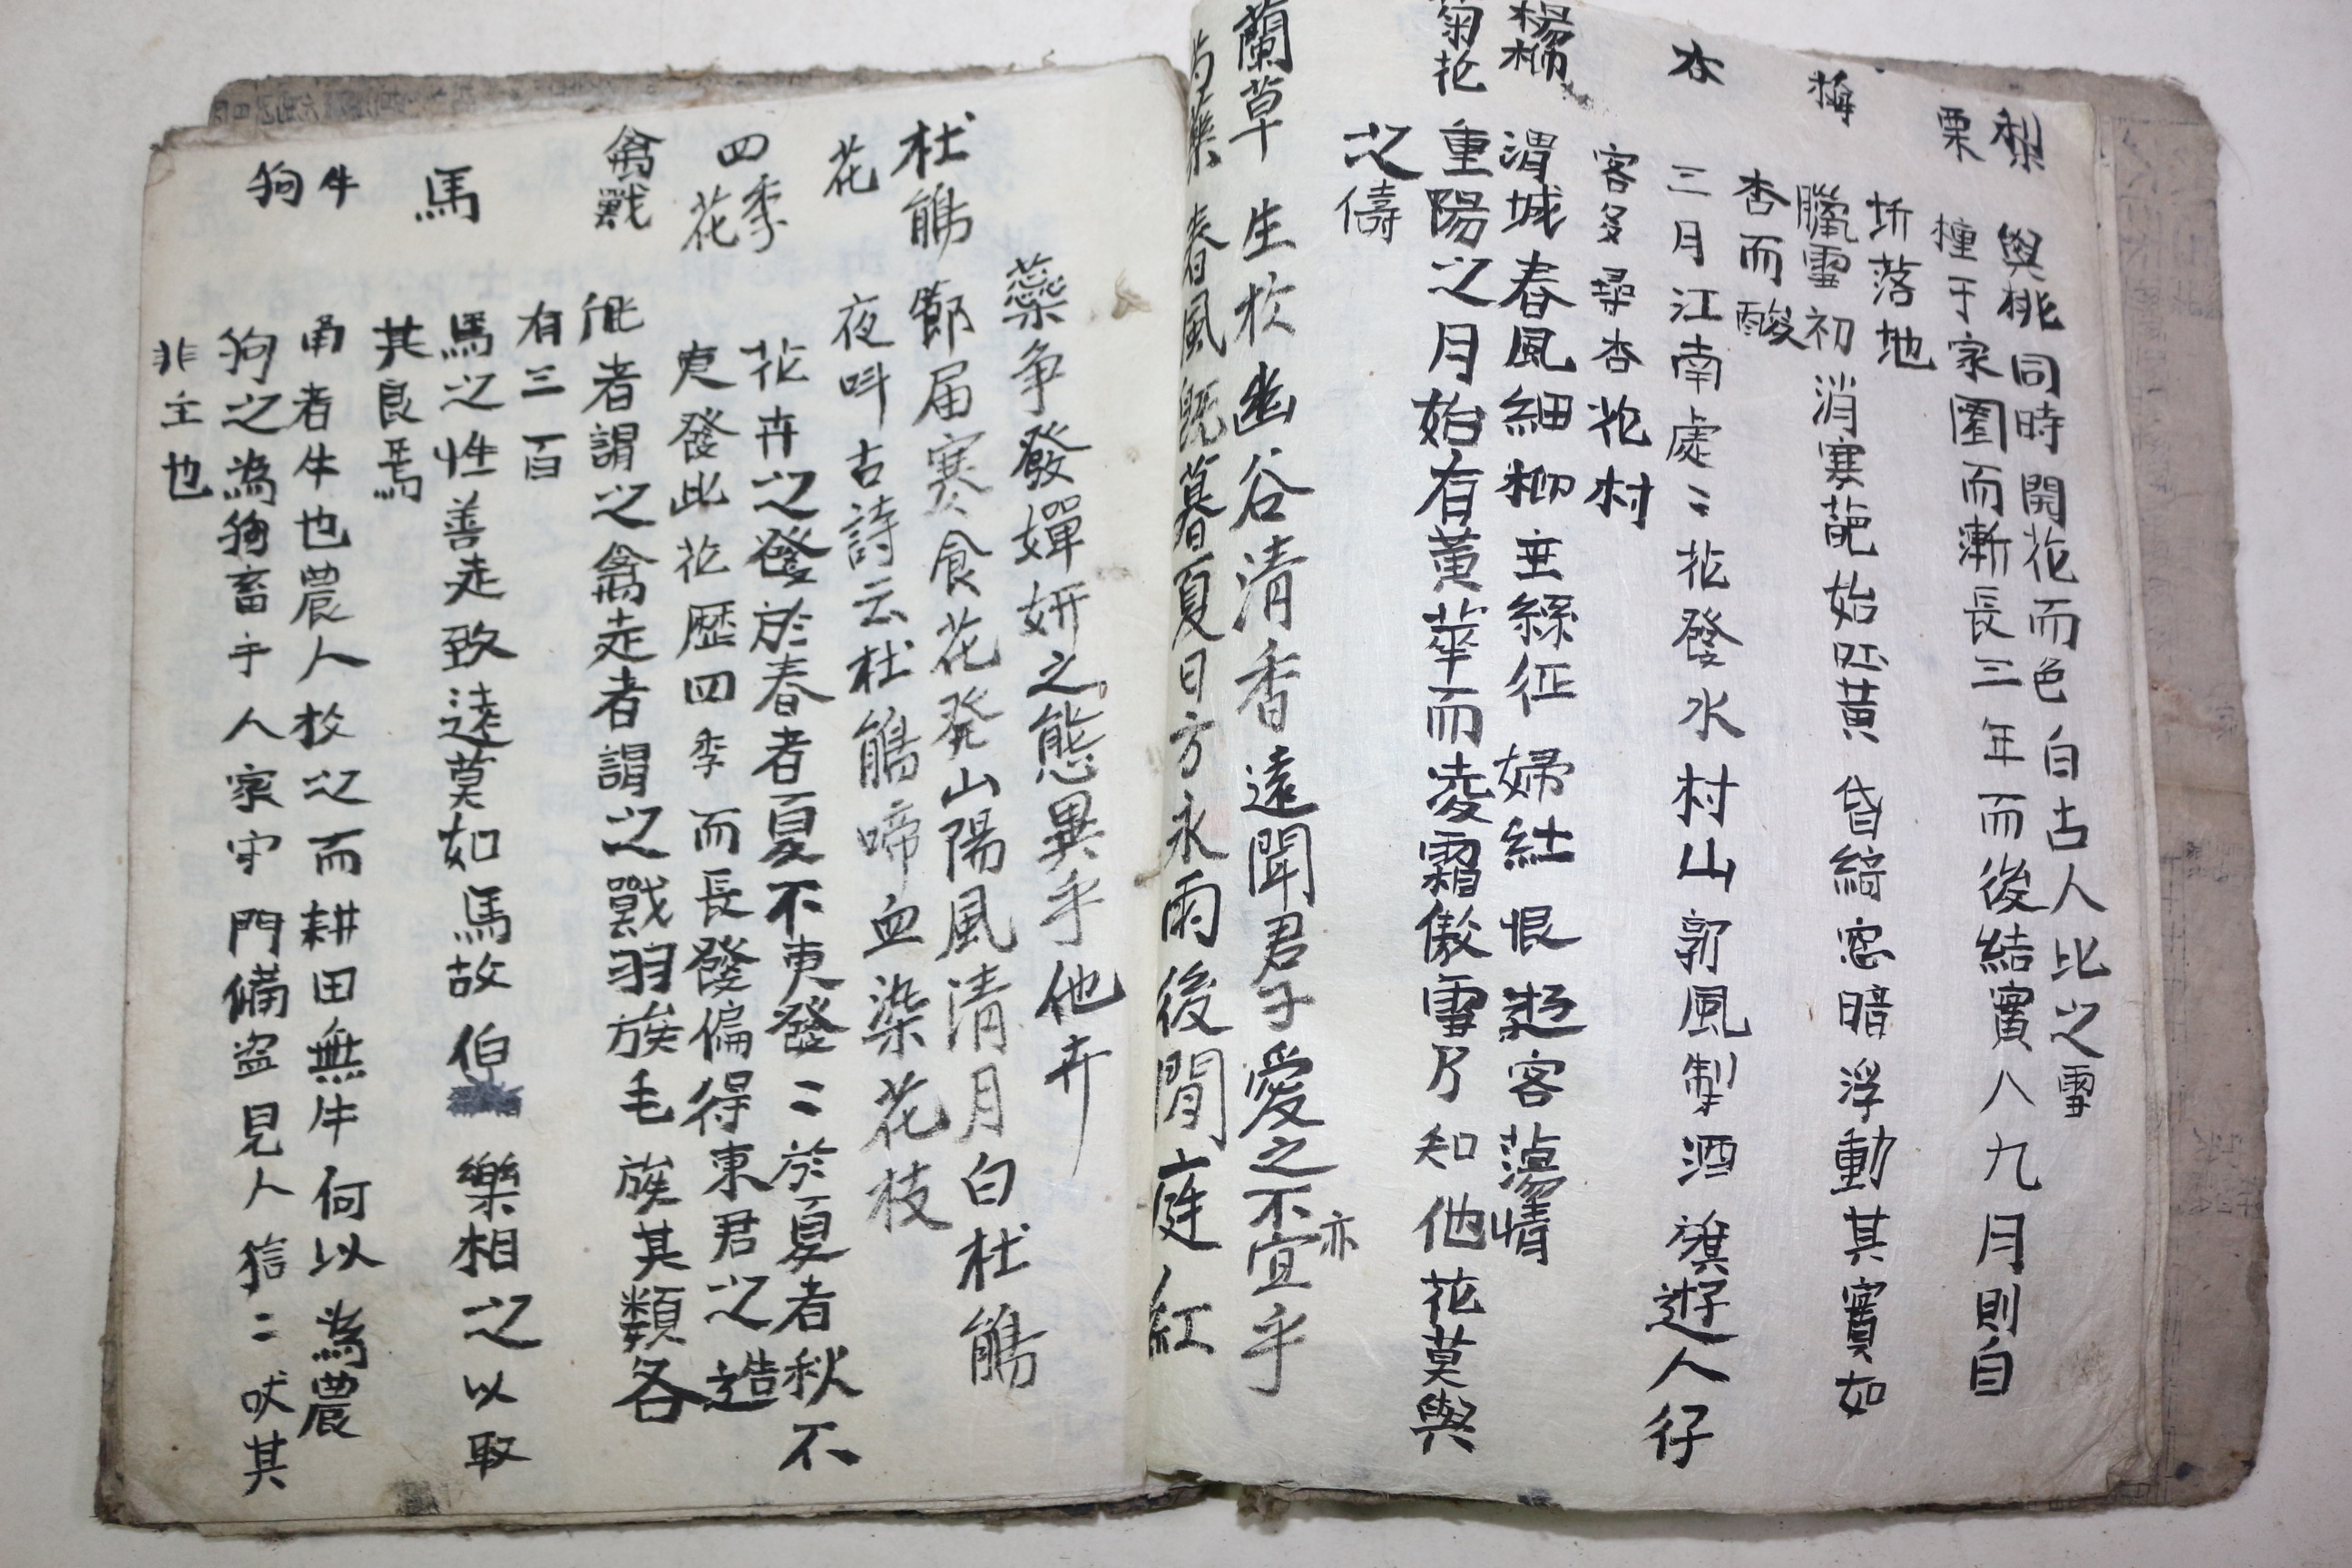 梨 與桃同時開花而色白古人比之雪
栗 種于家園而漸長三年而後結實八九月則自
坼落地
梅 臘雪初消寒葩始坼黃昏綺窓暗浮動其實如
杏而酸
杏 三月江南處〻花發水村山郭風製酒旗遊人仔
客多尋杏花村
楊柳 渭城春風細柳垂絲征婦紝恨遊客蕩情
菊花 重陽之月始有黃華而凌霜傲雪乃知他花莫與
之儔
蘭草 生於幽谷清香遠聞君子愛之不亦宜乎
芍藥 春風既暮夏日方永雨後閒庭紅
蘂争發嬋妍之態異乎他卉
杜鵑花 節届寒食花癸山陽風清月白杜鵑
夜呌古詩云杜鵑啼血染花枝
四季花 花卉之發於春者夏不更發〻於夏者秋不
更發此花歷四季而長發偏得東君之造
禽獸 飛者謂之禽走者謂之獸羽族毛族其類各
有三百
馬 馬之性善走致遠莫如馬故伯樂相之以取
其良焉
牛 甫者牛也農人牧之而耕田無牛何以為農
狗 狗之為狗畜于人家守門備盜見人狺〻吠其
非主也